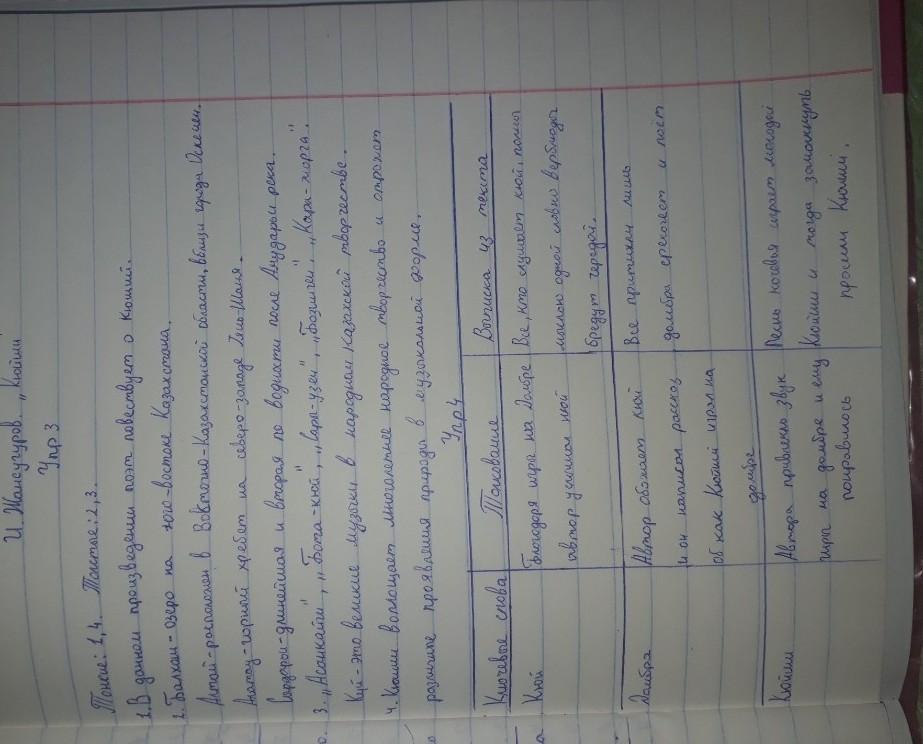 И. Жансугуров. „Кюйши
Упр 3
Тонкие: 1,4. Толстые: 2,3.
1. В данном произведении поэт повествует о Кюйши.
2. Балхаш - озеро на юго-востоке Казахстана.
Алтай - расположен в Восточно-Казахстанской области, вблизи города Оскемен.
Алатау - горный хребет на северо-западе Тянь-Шаня.
Сырдарья - длиннейшая и вторая по водности после Амударьи река.
3. „Асанкайғы", „Бота-кюй", „Сары-узен", „Бозинген", „Кара-жорга".
Кюй - это великие музыки в народном казахском творчестве.
4. Кюйши воплощает многолетнее народное творчество и отражает
различите проявления природы в музыкальной форме.
Упр 4
Ключевые слова Толкование Выписка из текста
Кюй Благодаря игры на Домбре Все, кто слушает кюй, полны
автор услышал кюй мыслью одной словно верблюды
бредут чередой.
Домбра Автор обожает кюй Все притихли лишь
и он написал рассказ домбра стрекочет и поёт
об как Кюйши играл на
домбре
Кюйши Автора привлекло звук Песнь кочевья играет молодой
игра на домбре и ему Кюйши и тогда замолкнуть
понравилось просили Кюйши.